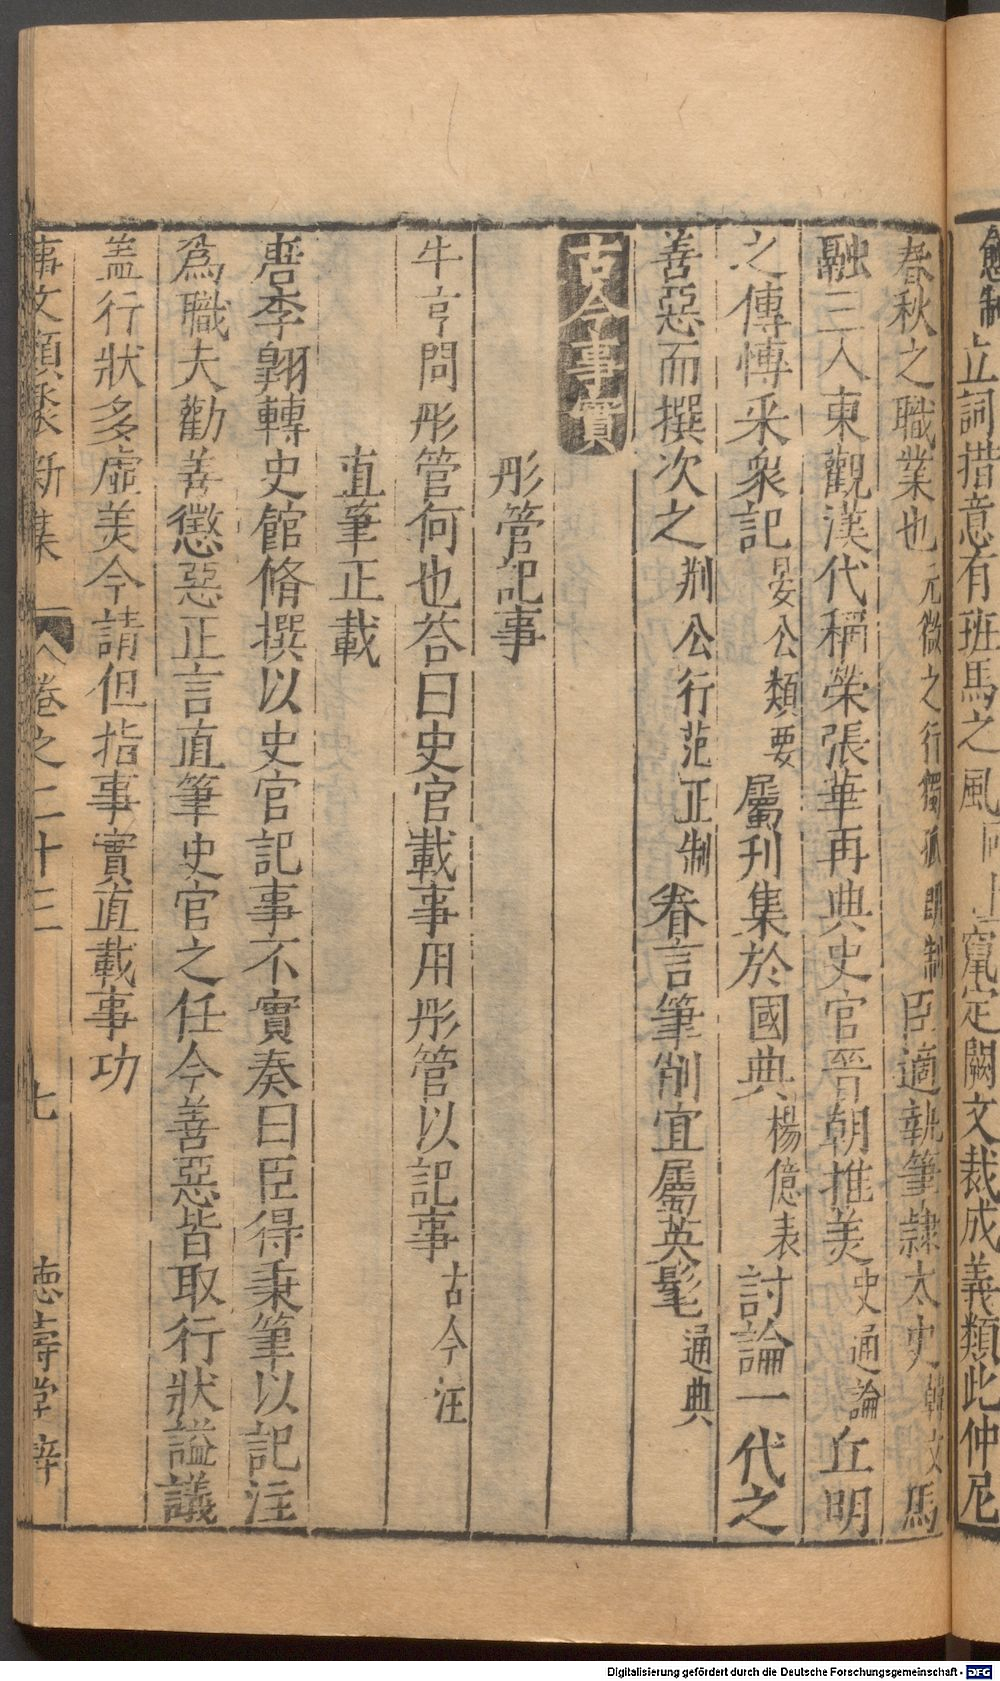 立詞措意有班馬之風
竄定闕文裁成義類此仲尼
春秋之職業也元微之行獨孤朗制臣適執筆隷太史韓文馬
融三入東觀漢代稱榮張華再典史官晉朝推美史通論丘明
之傳愽采衆記晏公類要屬刋集於國典楊億表討論一代之
善惡而撰次之荆公行范正制眷言筆削宜屬英髦通典
古今事實
彤管記事
牛亨問彤管何也荅曰史官載事用彤管以記事古今注
直筆正載
唐李翺轉史館脩撰以史官記事不實奏曰臣得秉筆以記注
爲職夫勸善懲惡正言直筆史官之任今善惡皆取行狀謚議
盖行狀多虛美今請但指事實直載事功
事文類聚新集 卷之二十三 七 德壽堂梓
Digitalisierung gefördert durch die Deutsche Forschungsgemeinschaft - DFG